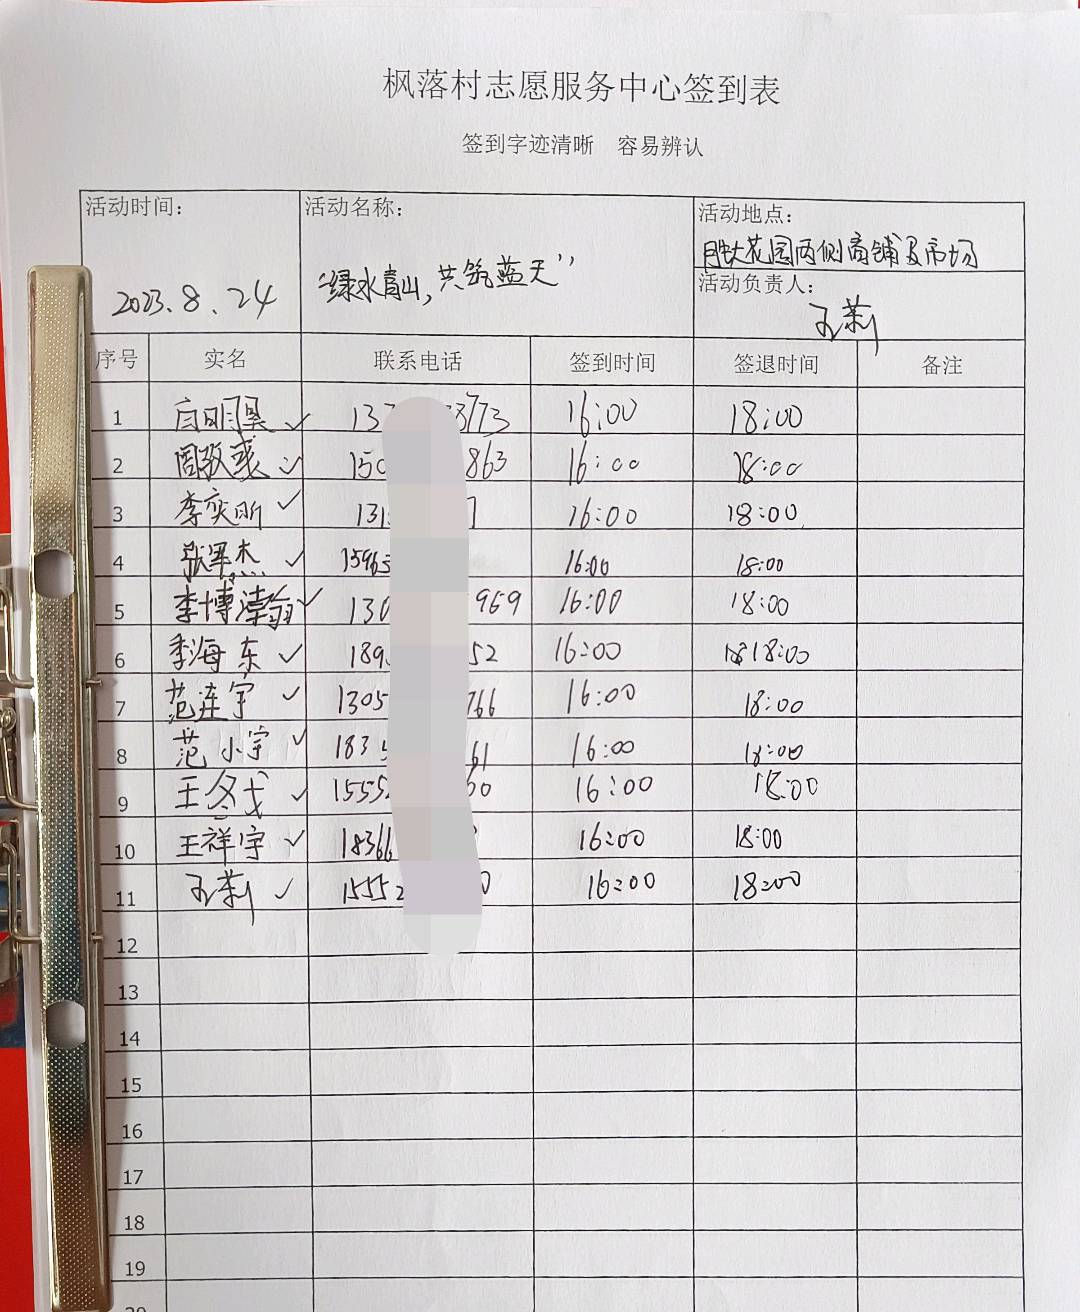 枫落村志愿服务中心签到表
签到字迹清晰 容易辨认
活动时间： 活动名称： 活动地点：
胜大花园两侧商铺及市场
2023.8.24 “绿水青山，共筑蓝天” 活动负责人：
王莉
序号 实名 联系电话 签到时间 签退时间 备注
1 白明昊 ✓ 137 3773 16:00 18:00
2 ✓ 150 863 16:00 18:00
3 李奕昕 ✓ 131 16:00 18:00
4 张军杰 ✓ 15963 16:00 18:00
5 李博瀚 ✓ 130 969 16:00 18:00
6 季海东 ✓ 189 52 16:00 18:00
7 范连宇 ✓ 1305 766 16:00 18:00
8 范小宇 ✓ 183 61 16:00 18:00
9 王冬戈 ✓ 1555 60 16:00 18:00
10 王祥宇 ✓ 18366 16:00 18:00
11 王莉 ✓ 15552 0 16:00 18:00
12
13
14
15
16
17
18
19